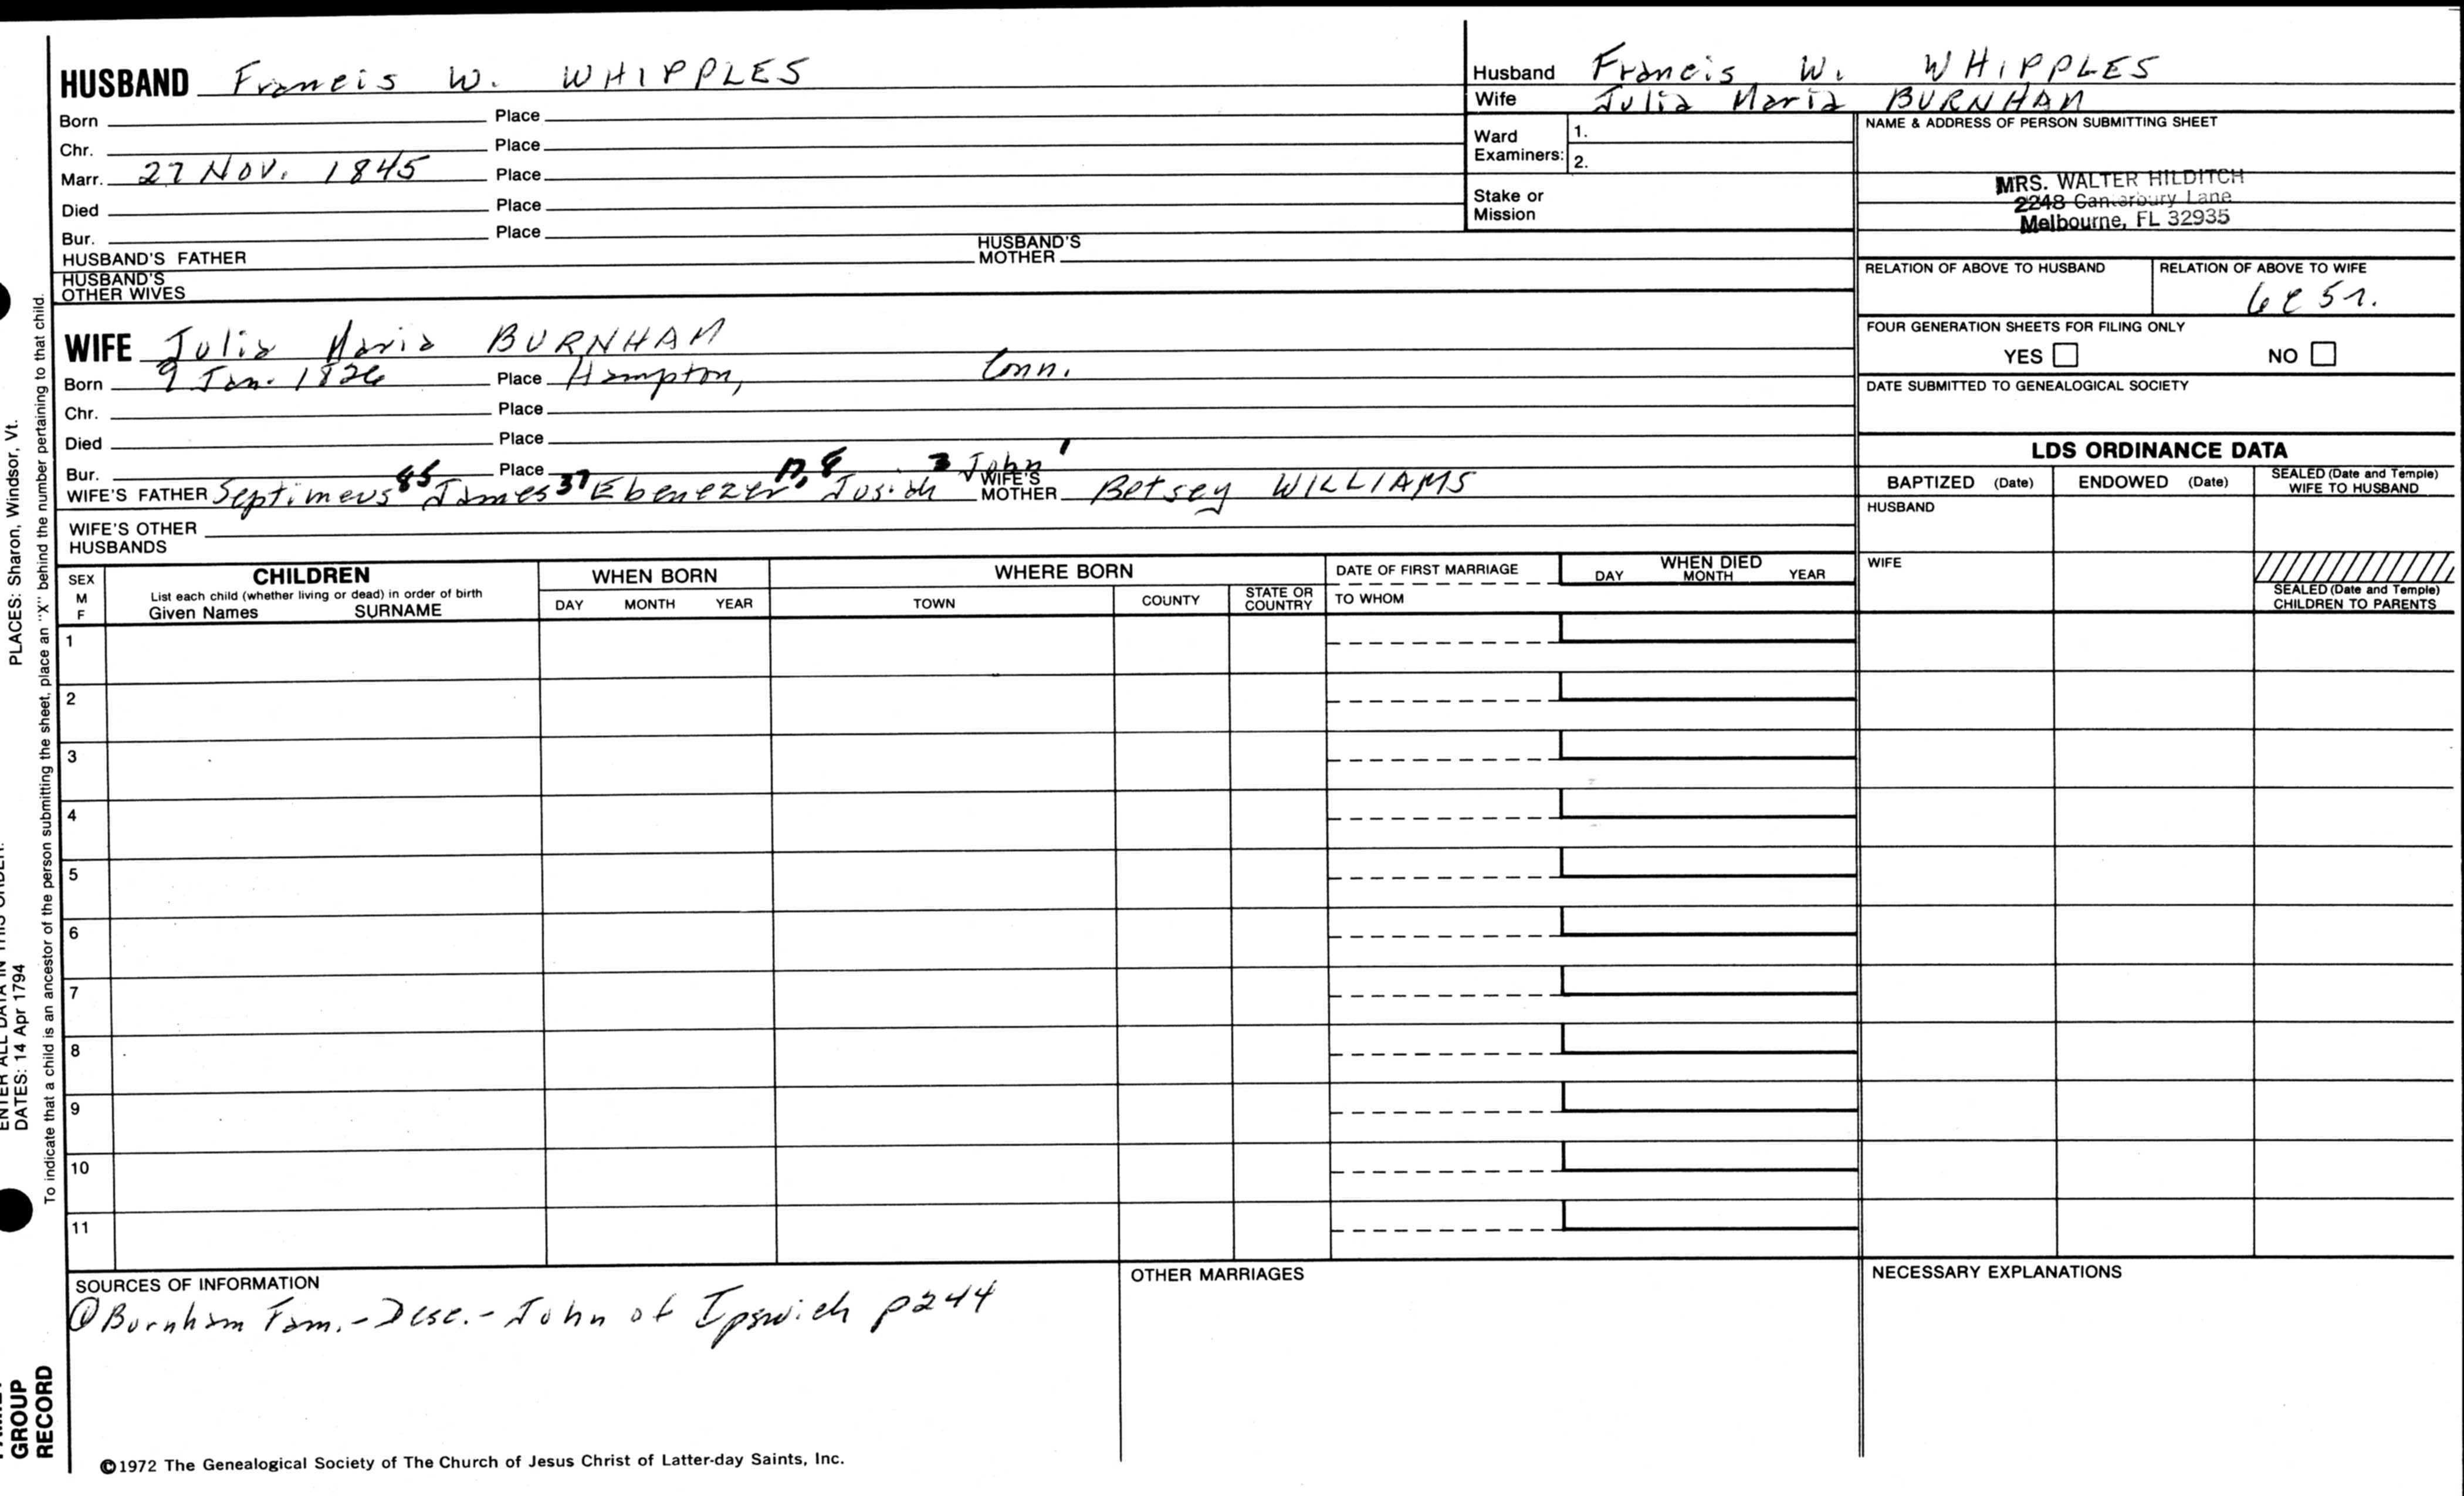 HUSBAND Francis W. WHIPPLES
Born Place
Chr. Place
Marr. 27 Nov. 1845 Place
Died Place
Bur. Place
HUSBAND'S FATHER HUSBAND'S MOTHER
HUSBAND'S OTHER WIVES
Husband Francis W. WHIPPLES
Wife Julia Maria BURNHAM
Ward Examiners: 1.
2.
Stake or Mission
NAME & ADDRESS OF PERSON SUBMITTING SHEET
MRS. WALTER HILDITCH
2248 Canterbury Lane
Melbourne, FL 32935
RELATION OF ABOVE TO HUSBAND RELATION OF ABOVE TO WIFE
6C5r.
FOUR GENERATION SHEETS FOR FILING ONLY
YES NO
DATE SUBMITTED TO GENEALOGICAL SOCIETY
WIFE Julia Maria BURNHAM
Born 9 Jan. 1826 Place Hampton, Conn.
Chr. Place
Died Place
Bur. Place
WIFE'S FATHER Septimeus 85 James 37 Ebenezer Josiah 3 John 1 WIFE'S MOTHER Betsey WILLIAMS
WIFE'S OTHER HUSBANDS
LDS ORDINANCE DATA
BAPTIZED (Date) ENDOWED (Date) SEALED (Date and Temple) WIFE TO HUSBAND
HUSBAND
WIFE
SEALED (Date and Temple) CHILDREN TO PARENTS
SEX M F
CHILDREN
List each child (whether living or dead) in order of birth
Given Names SURNAME
WHEN BORN
DAY MONTH YEAR
WHERE BORN
TOWN COUNTY STATE OR COUNTRY
DATE OF FIRST MARRIAGE
TO WHOM
WHEN DIED
DAY MONTH YEAR
1
2
3
4
5
6
7
8
9
10
11
SOURCES OF INFORMATION
① Burnham Fam. - Desc. - John of Ipswich p244
OTHER MARRIAGES
NECESSARY EXPLANATIONS
©1972 The Genealogical Society of The Church of Jesus Christ of Latter-day Saints, Inc.
PLACES: Sharon, Windsor, Vt.
ENTER ALL DATA IN THIS ORDER:
DATES: 14 Apr 1794
To indicate that a child is an ancestor of the person submitting the sheet, place an "X" behind the number pertaining to that child.
GROUP
RECORD